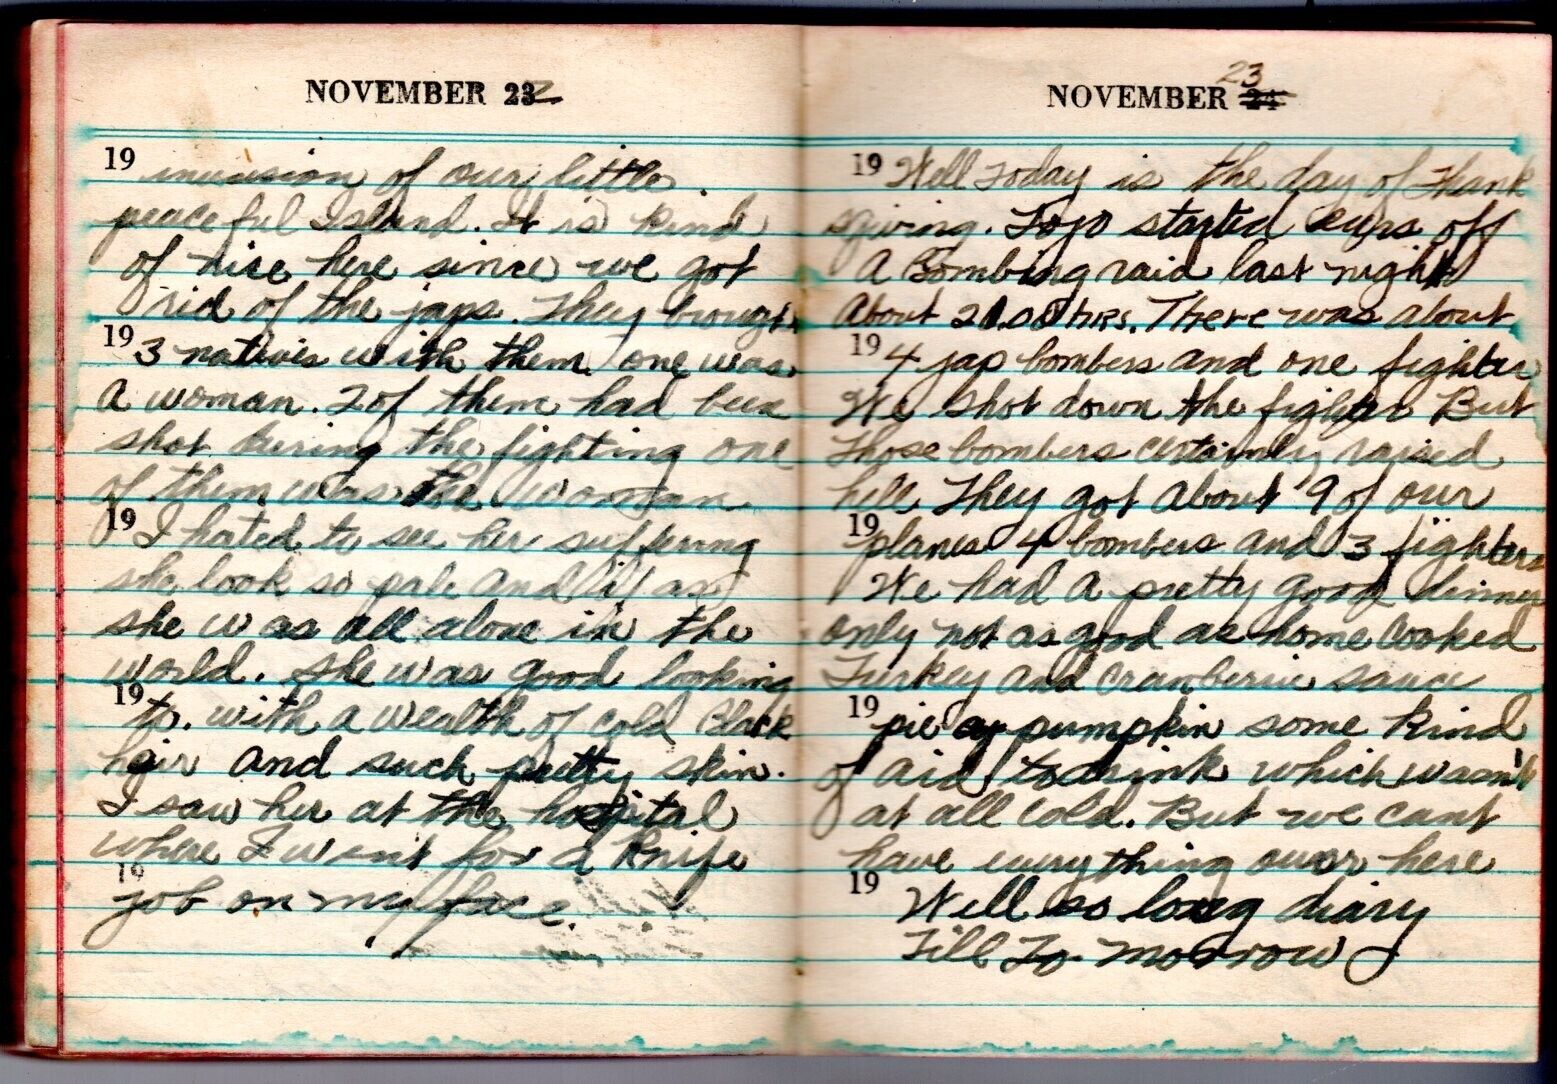 NOVEMBER 22
19 invasion of our little
peaceful Island. It is kind
of nise here since we got
rid of the japs. They brought
19 3 natives with them. one was
A woman. 2 of them had been
shot during the fighting one
of them was the woman
19 I hated to see her suffering
she look so pale and as
she was all alone in the
world. She was good looking
19 to. with a wealth of cold Black
hair and such pretty skin.
I saw her at the hospital
where I went for a knife
19 job on my face.
NOVEMBER 24 23
19 Well Today is the day of Thank
sgiving. Tojo started off
A Bombing raid last night
About 21.00 hrs. There was about
19 4 jap bombers and one fighter
We shot down the fighter But
those bombers certainly raised
hell They got About 9 of our
19 planes 4 bombers and 3 fighters
We had A pretty good dinner
only not as good as home cooked
Turkey and Cranberrie sauce
19 pie pumpkin some kind
of aid to drink which wasn't
at all cold. But we cant
have everything over here
19 Well so long diary
Till To-morrow